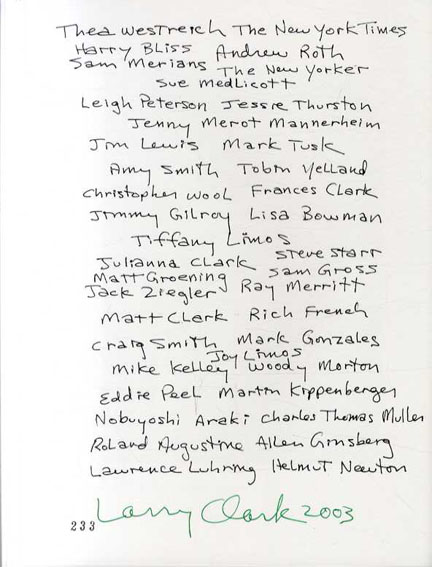 Thea Westreich The New York Times
Harry Bliss Andrew Roth
Sam Merians The New Yorker
Sue Medlicott
Leigh Peterson Jessie Thurston
Jenny Merot Mannerheim
Jim Lewis Mark Tusk
Amy Smith Tobin Yelland
Christopher Wool Frances Clark
Jimmy Gilroy Lisa Bowman
Tiffany Limos
Julianna Clark Steve Starr
Matt Groening Sam Gross
Jack Ziegler Ray Merritt
Matt Clark Rich French
Craig Smith Mark Gonzales
Joy Limos
Mike Kelley Woody Morton
Eddie Peel Martin Kippenberger
Nobuyoshi Araki Charles Thomas Muller
Roland Augustine Allen Ginsberg
Lawrence Luhring Helmut Newton
Larry Clark 2003
233